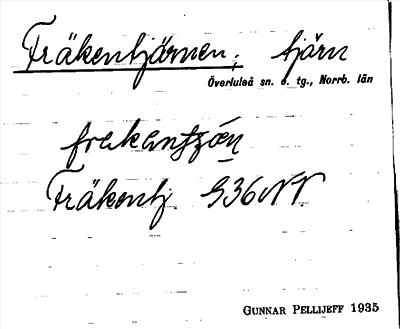 Fräkentjärnen, tjärn
Överluleå sn. o. tg., Norrb. län
Fräkentj. S36NV.
GUNNAR PELLIJEFF 1935